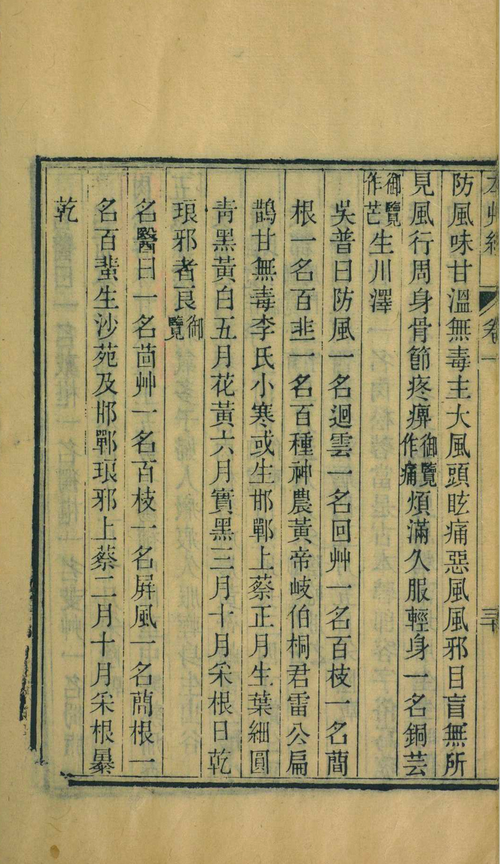 本艸經 卷一 三十
防風味甘溫無毒主大風頭眩痛惡風風邪目盲無所
見風行周身骨節疼痹御覽作痛煩滿久服輕身一名銅芸
御覽作芒生川澤
吳普曰防風一名迴雲一名回艸一名百枝一名蕑
根一名百韭一名百種神農黃帝岐伯桐君雷公扁
鵲甘無毒李氏小寒或生邯鄲上蔡正月生葉細圓
靑黑黃白五月花黃六月實黑三月十月采根日乾
琅邪者良御覽
名醫曰一名茴艸一名百枝一名屏風一名蕑根一
名百蜚生沙苑及邯鄲琅邪上蔡二月十月采根暴
乾